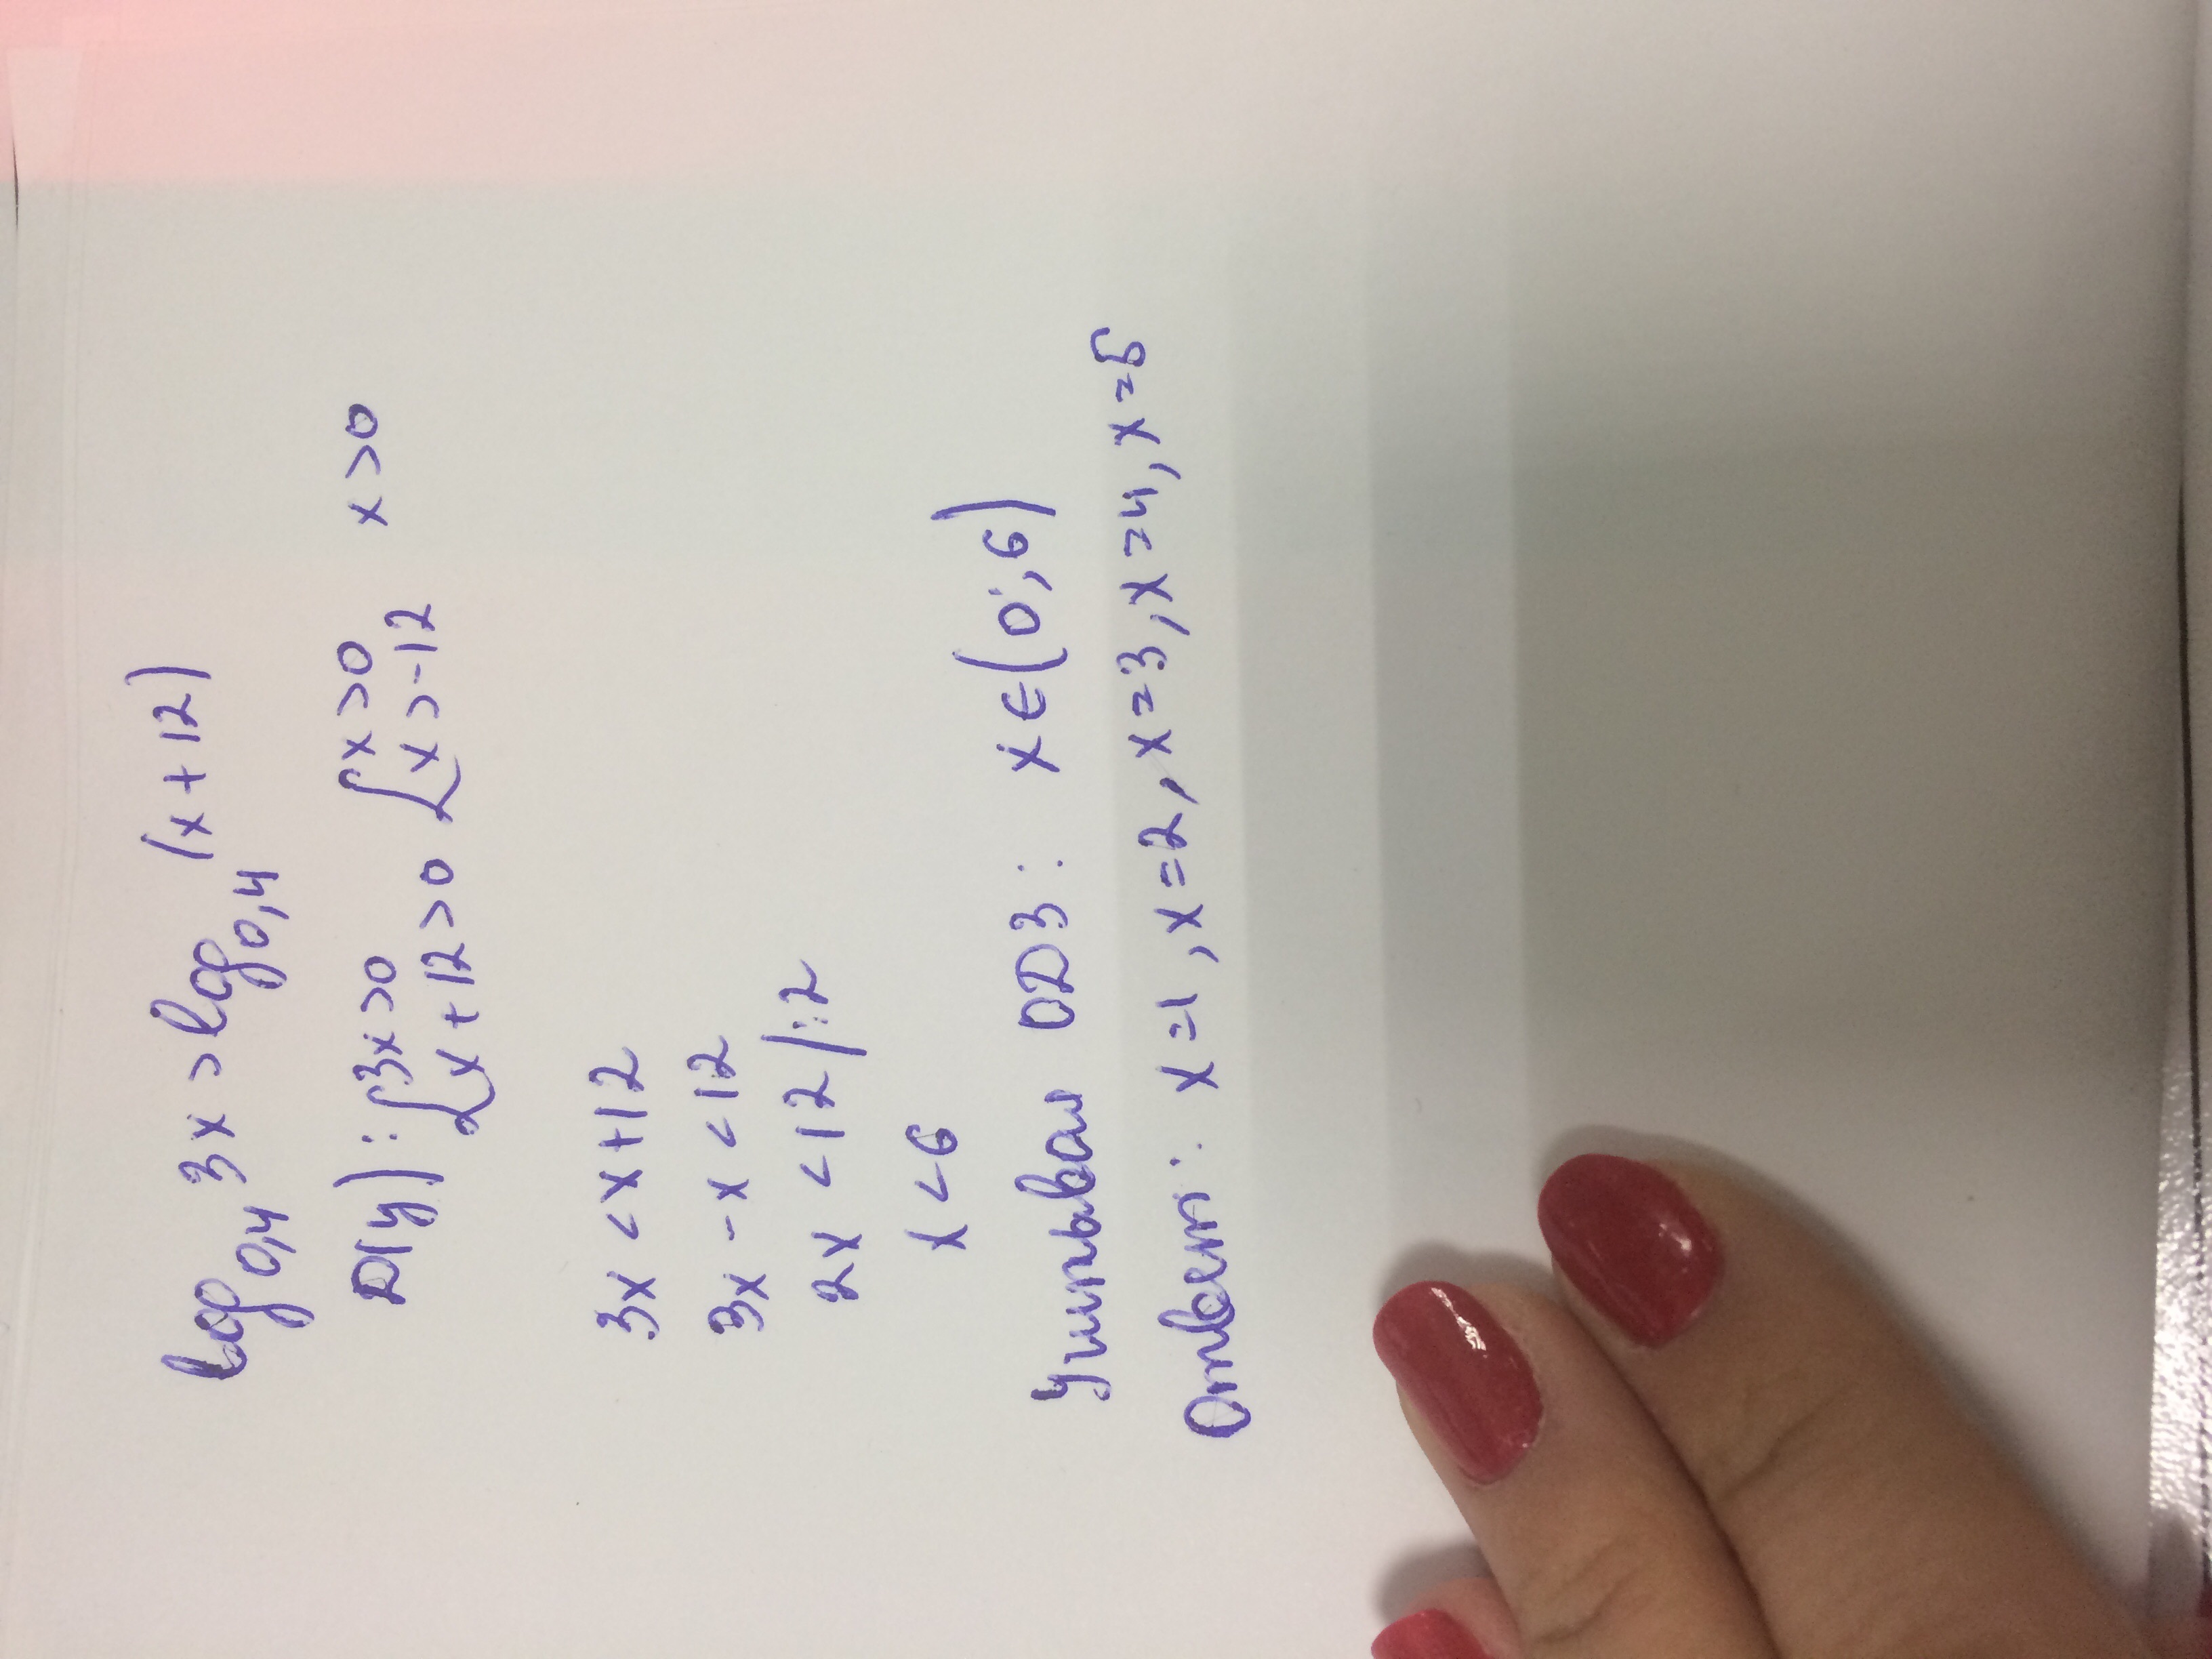 log₀,₄ 3x > log₀,₄ (x+12)
D(y): { 3x>0 { x>0 x>0
{ x+12>0 { x>-12
3x < x+12
3x - x < 12
2x < 12 /:2
x < 6
Учитывая ОДЗ: x∈(0;6)
Ответ: x=1, x=2, x=3, x=4, x=5